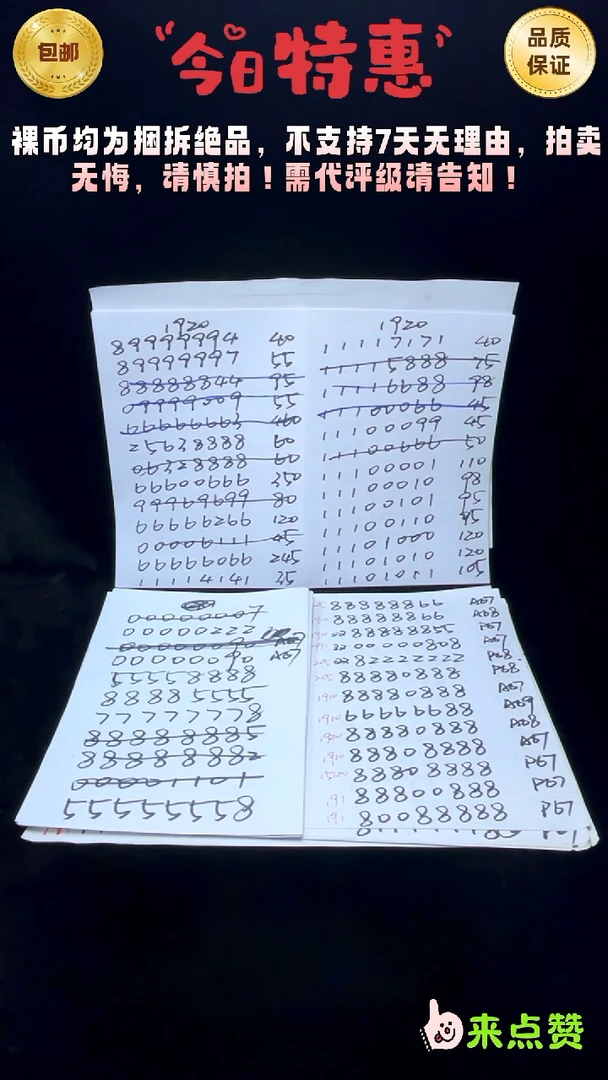 包邮
今日特惠
品质
保证
裸币均为捆拆绝品，不支持7天无理由，拍卖
无悔，请慎拍！需代评级请告知！
1920
89999994 40
89999997 55
88888844 95
09999009 55
66666663 460
25638888 60
06328888 60
66600666 350
99969699 80
66666266 120
00006111 45
66666066 245
11114141 35
1920
11117171 40
11115888 75
11116688 98
11100066 45
11100099 45
11100666 50
11100001 110
11100010 98
11100101 95
11100110 45
11101000 120
11101010 120
11101011 105
00000007
00000222
00000090 A67
55558888
88885555
77777778
88888885
88888882
00001101
55555558
88888866 A67
88888866 A68
88888855 P67
00000808 A67
82222222 P68
88880888 P67
1910 88880888 A67
1910 66666688 A69
1920 88880888 A68
1910 88808888 A67
88808888 P67
191 88800888 P67
191 80088888 P67
来点赞